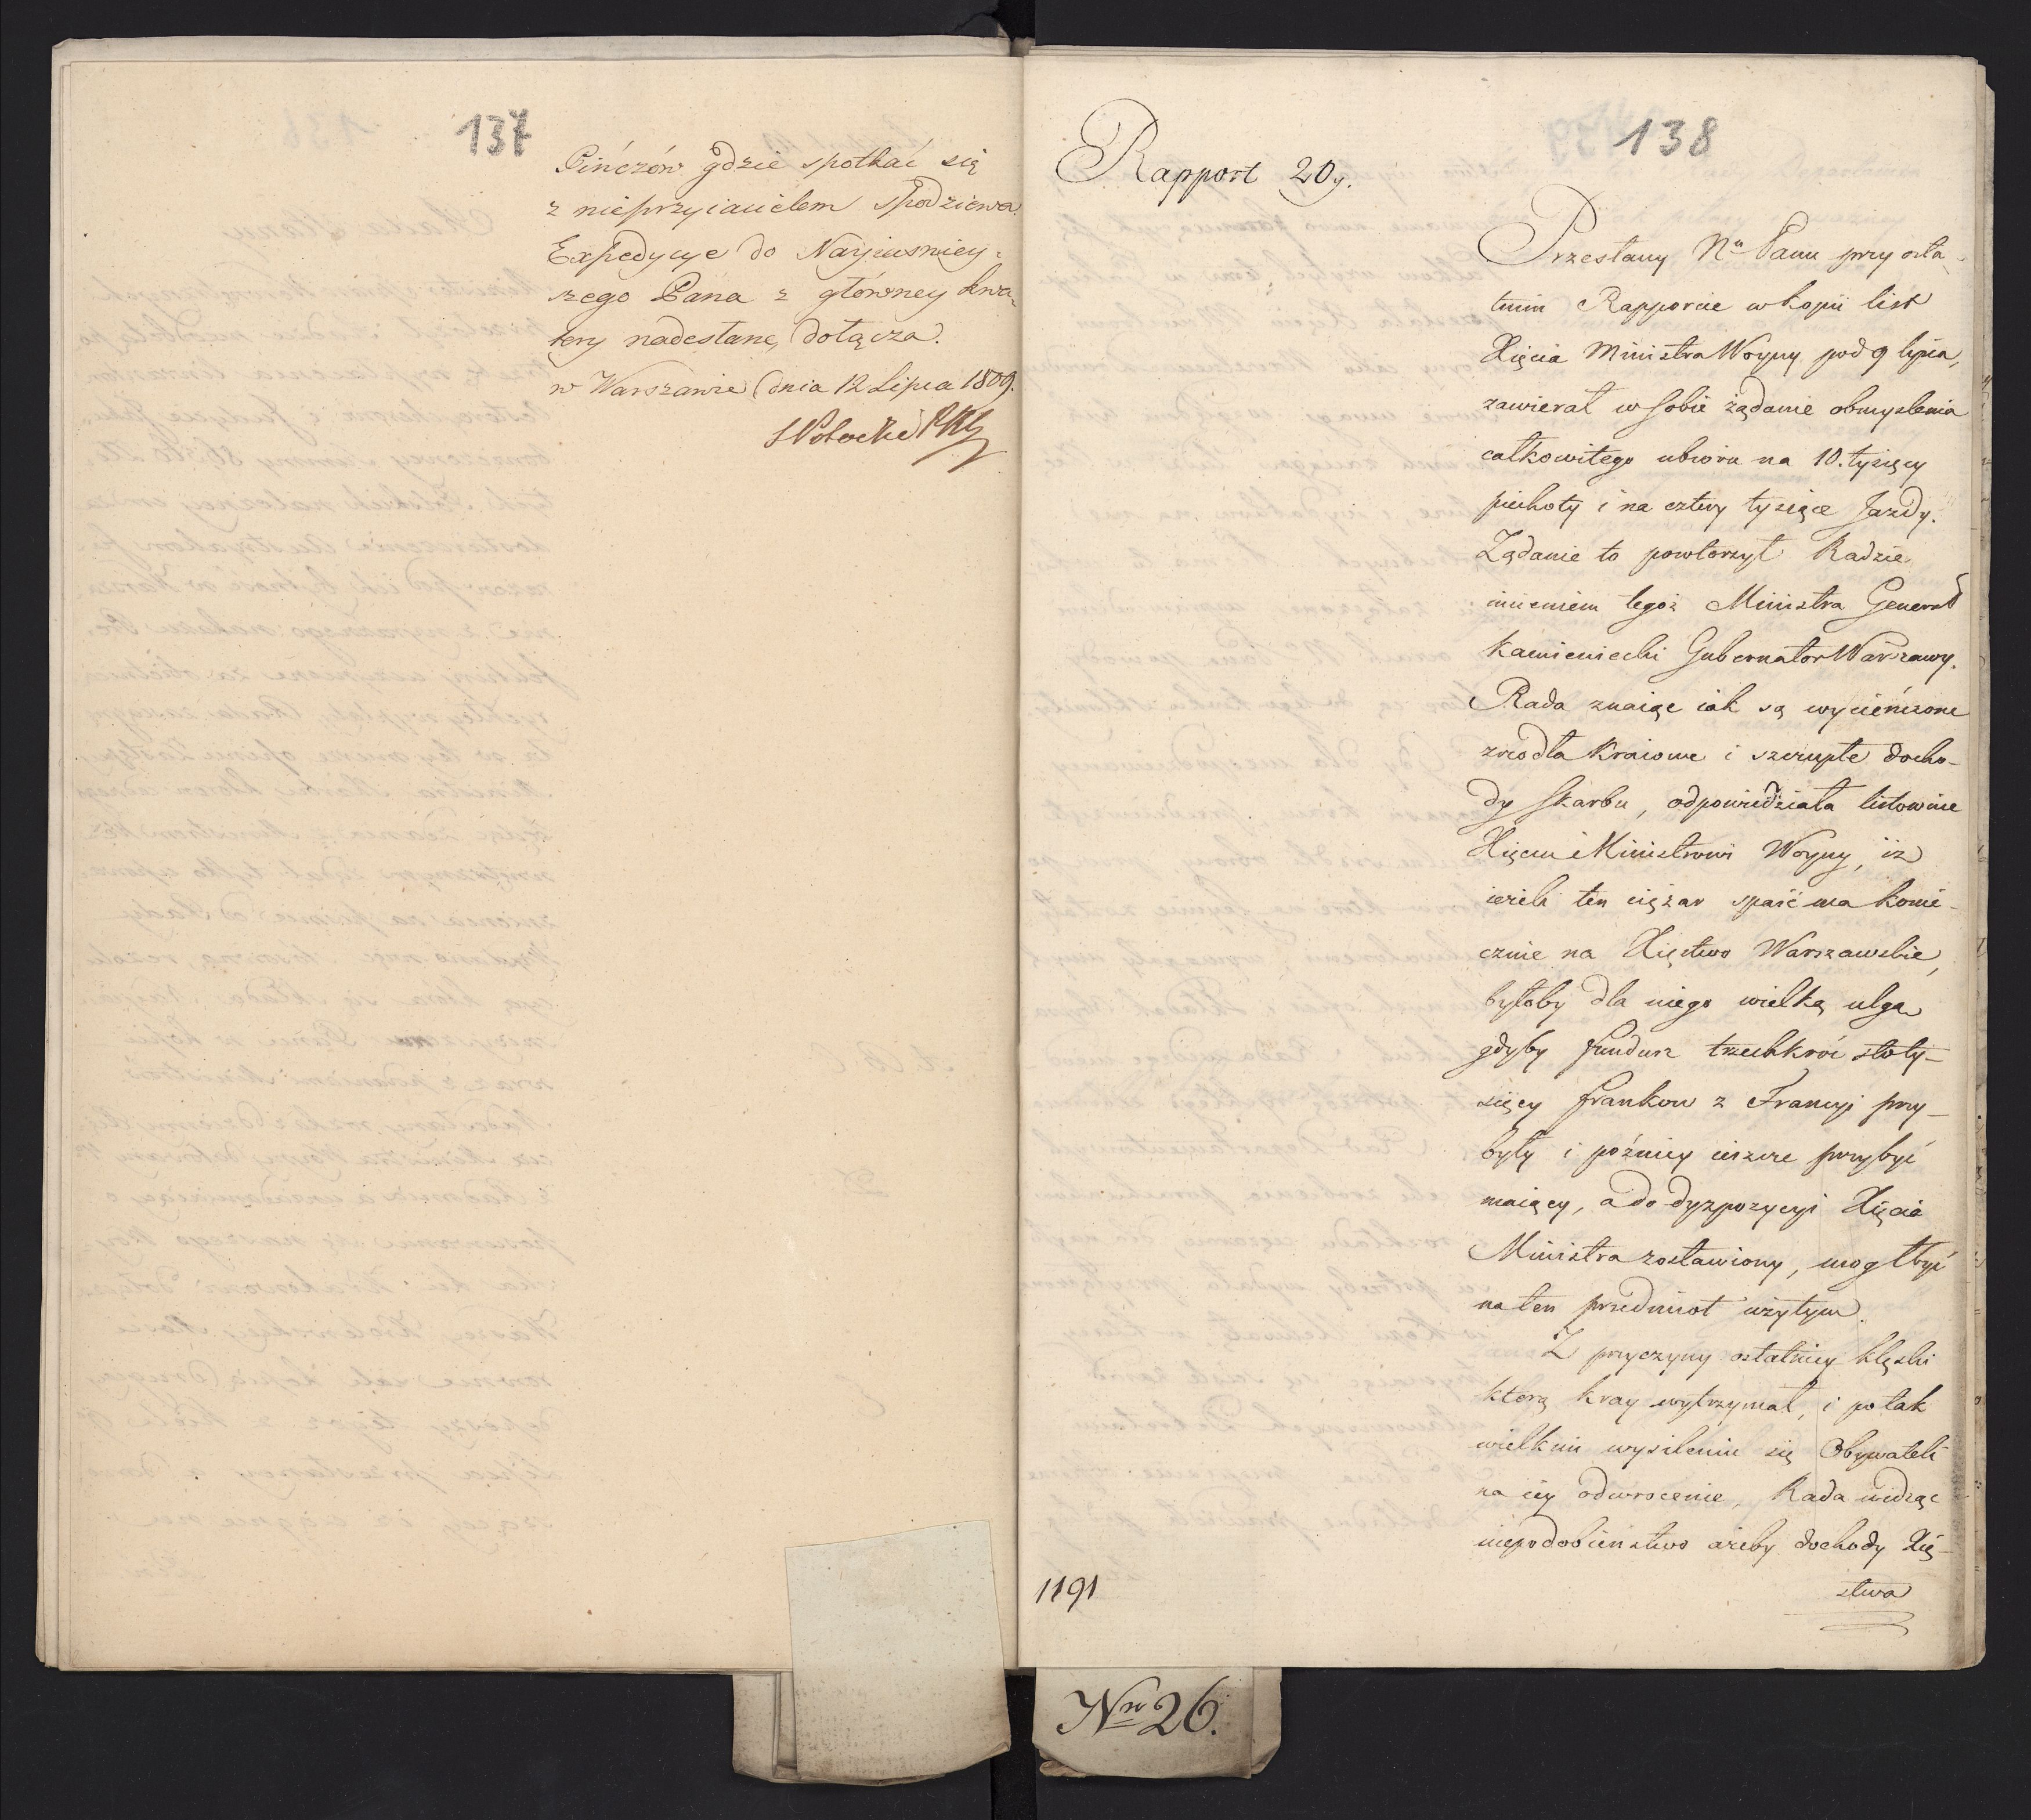 137
Pińczów gdzie spotkać się
z nieprzyiacielem spodziewa.
Expedycye do Nayiasniey-
szego Pana z główney kwa-
tery nadesłane, dołącza.
w Warszawie dnia 12 Lipca 1809.
SPotocki
138
Rapport 20y.
Przesłany Nu Panu przy osta-
tnim Rapporcie w kopii list
Xięcia Ministra Woyny pod 9 lipca,
zawierał w sobie żądanie obmyslenia
całkowitego ubioru na 10. tysięcy
piechoty i na cztery tysiące Jazdy.
Żądanie to powtorzył Radzie
imieniem tegoż Ministra Generał
Kamieniecki Gubernator Warszawy.
Rada znaiąc iak są wycieńczone
zrodła Kraiowe i szczupłe docho-
dy Skarbu, odpowiedziała listownie
Xięciu Ministrowi Woyny, iż
ieżeli ten ciężar spaść ma konie-
cznie na Xięstwo Warszawskie,
byłoby dla niego wielką ulgą
gdyby fundusz trzechkroć stoty-
sięcy frankow z Francyi przy-
były i poźniey ieszcze przybyć
maiący, a do dyzpozycyi Xięcia
Ministra zostawiony, mogł być
na ten przedmiot użytym.
Z przyczyny ostatniey klęski
którą kray wytrzymał, i po tak
wielkim wysileniu się Obywateli
na iey odwrocenie, Rada widząc
niepodobieństwo ażeby dochody Xię-
stwa
1191
Nro 26.